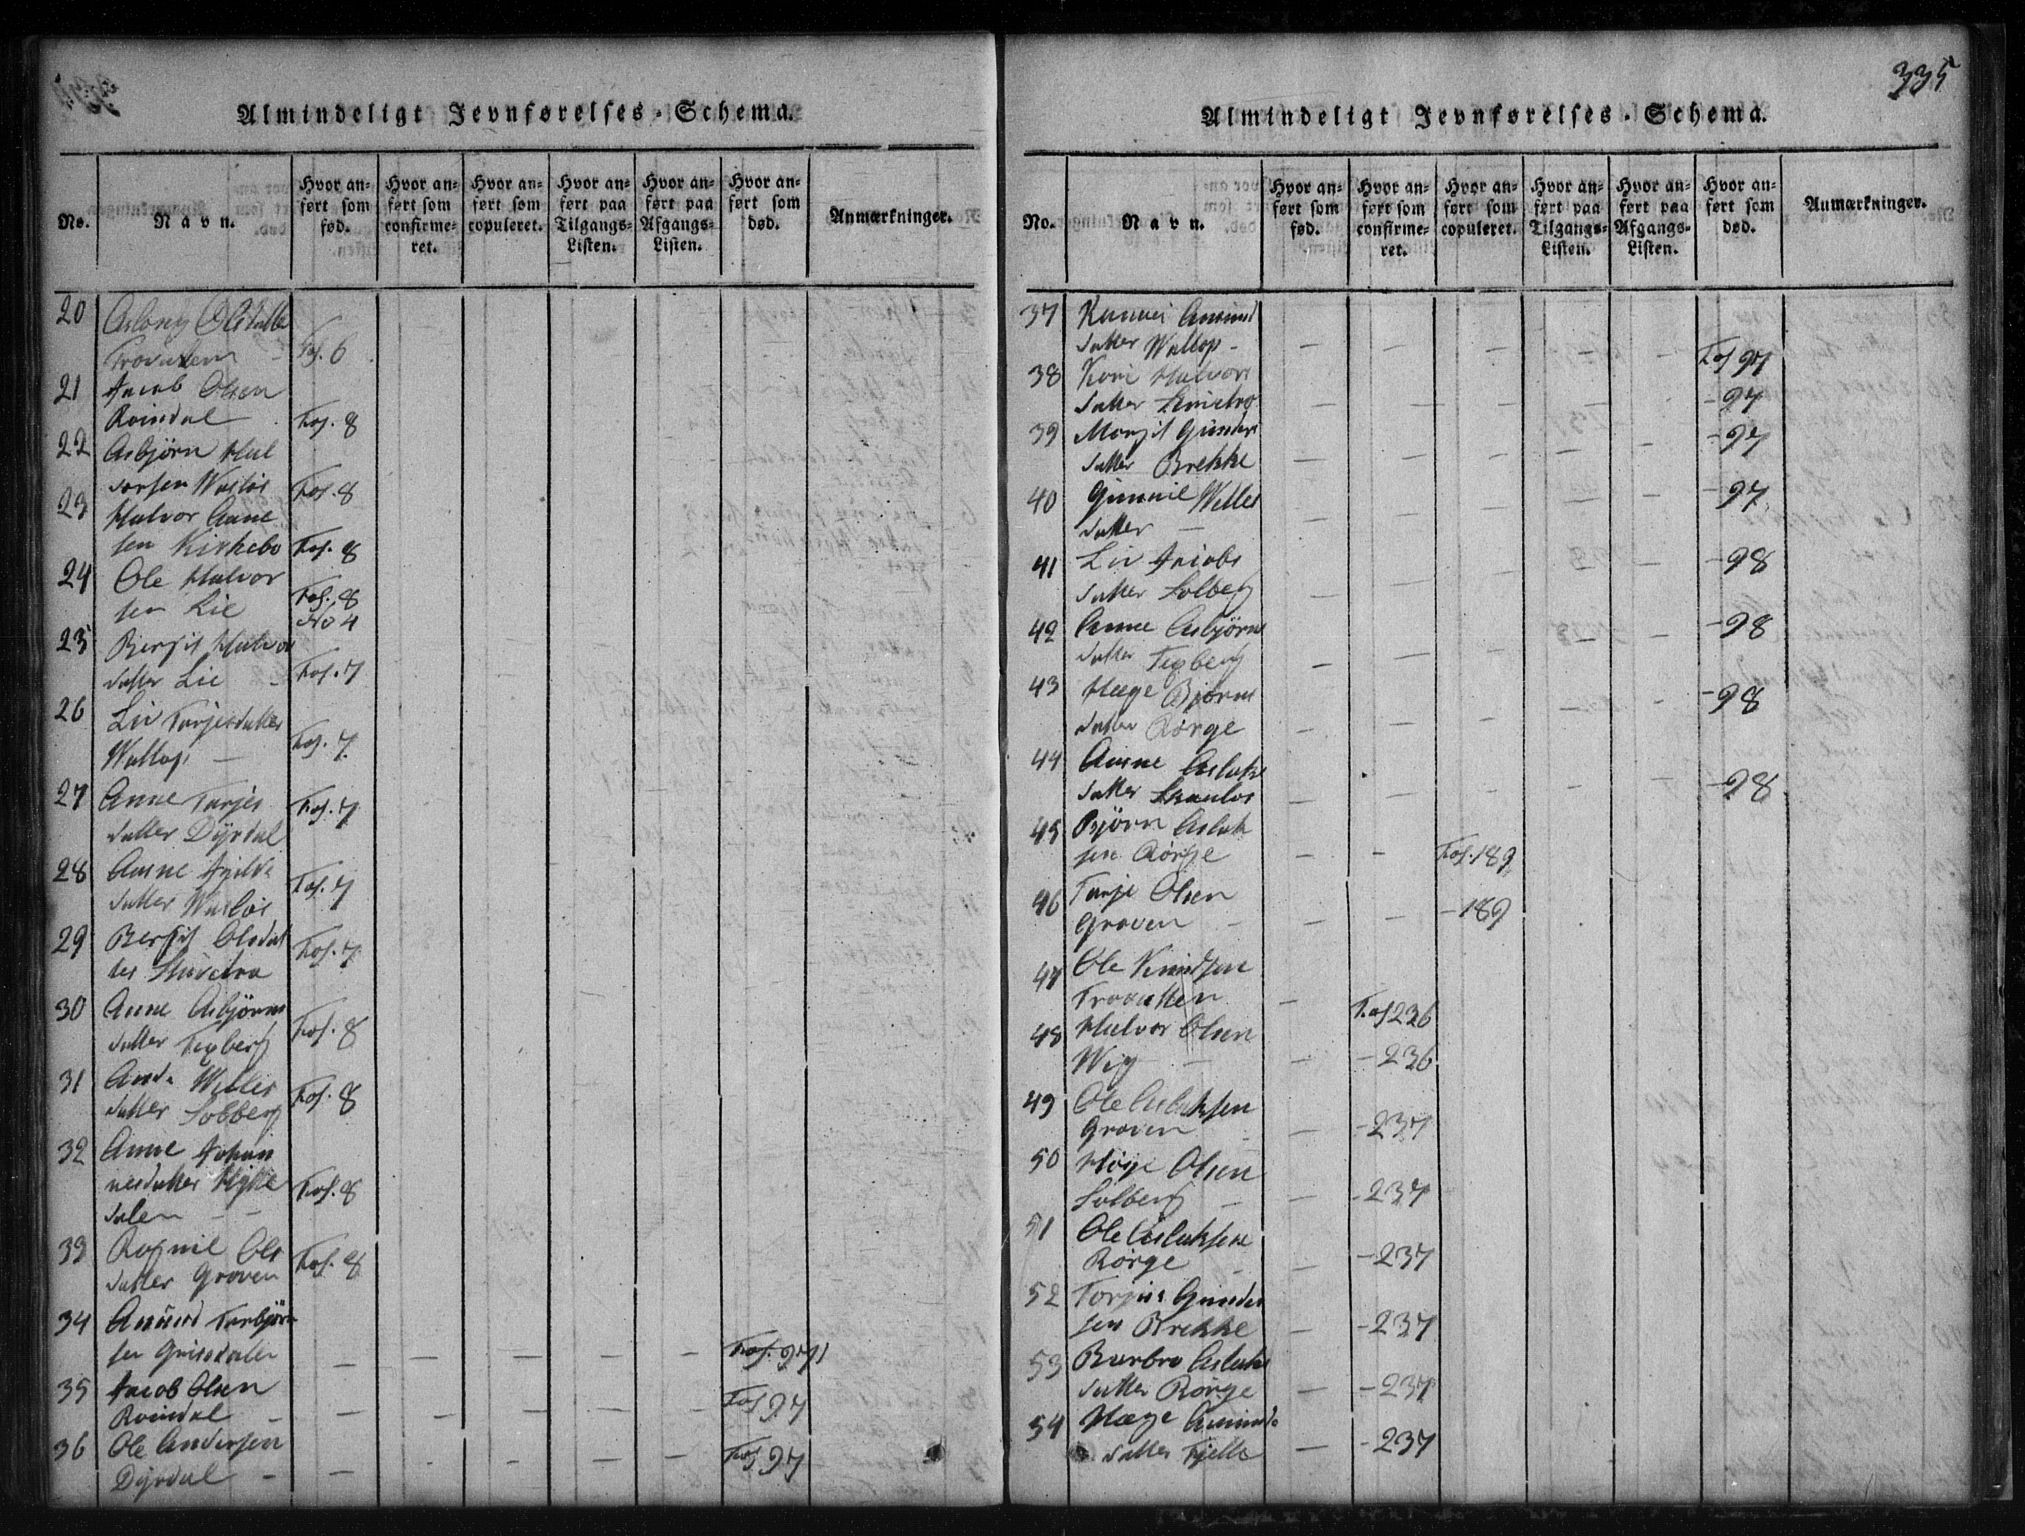 Almindeligt Jevnførelses-Schema.
No.
Navn.
Hvor anført som fød.
Hvor anført som confirmeret.
Hvor anført som copuleret.
Hvor anført paa Tilgangs-Listen.
Hvor anført paa Afgangs-Listen.
Hvor anført som død.
Anmærkninger.
20 Olsdatter
Fol. 6
21 Jacob Olsen
Roindal Fol. 8
22 Asbjørn Hal
vorsen Fol. 8
23 Halvor Aane
sen Kirkebø Fol. 8
24 Ole Halvor
sen Lie Fol. 8
No 4
25 Bergit Halvors
datter Lie - Fol. 7
26 Liv Tarjesdatter
Wallop - Fol. 7
27 Anne Tarjes
datter Dyrdal Fol. 7
28 Aasne
datter Fol. 7
29 Bergit Olsdat
ter Fol. 7
30 Anne Asbjørns
datter Texberg Fol. 8
31 Willes
datter Solberg Fol. 8
32 Anne Johan
nesdatter
dalen - - Fol. 8
33 Rognil Ols
datter Groven Fol. 8
34 Amund Torbjørn
sen - - - - - Fol. 97
35 Jacob Olsen
Roindal - - - - - - Fol 97
36 Ole Andersen
Dyrdal - - - - - - Fol 97
335
Almindeligt Jevnførelses-Schema.
No.
Navn.
Hvor anført som fød.
Hvor anført som confirmeret.
Hvor anført som copuleret.
Hvor anført paa Tilgangs-Listen.
Hvor anført paa Afgangs-Listen.
Hvor anført som død.
Anmærkninger.
37 Amund
datter Wallop - - - - - - Fol 97
38 Kari Halvors
datter - - - - - - 97
39 Margit Gunders
datter Brekke - - - - - - 97
40 Gunnil Willes
datter - - 97
41 Liv Jacobs
datter Solberg - - - - - - 98
42 Anne Asbjørns
datter Texberg - - - - - - 98
43 Hæge Bjørns
datter Rørge - - - - - - 98
44 Aasne Aslaks
datter - - - - - - 98
45 Bjørn Aslak
sen Rørge - - Fol. 189
46 Tarje Olsen
Groven - - - - 189
47 Ole Knudsen
- Fol 236
48 Halvor Olsen
Wig - - - 236
49 Ole Aslaksen
Groven - - - 237
50 Olsen
Solberg - - - 237
51 Ole Aslaksen
Rørge - - - 237
52 Gunder
sen Brekke - - 237
53 Barbro Aslaks
datter Rørge - - 237
54 Hæge Amunds
datter - - 237